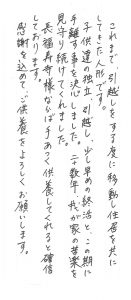 これまで、引越しをする度に移動し住居を共に
してきた人形です。
子供達の独立、引越し、少し早めの終活と、この期に
手離す事を決心しました。二十数年、我が家の苦楽を
見守り続けてくれました。
長福寿寺様ならば手あつく供養してくれると確信
しております。
感謝を込めて、ご供養をよろしくお願いします。